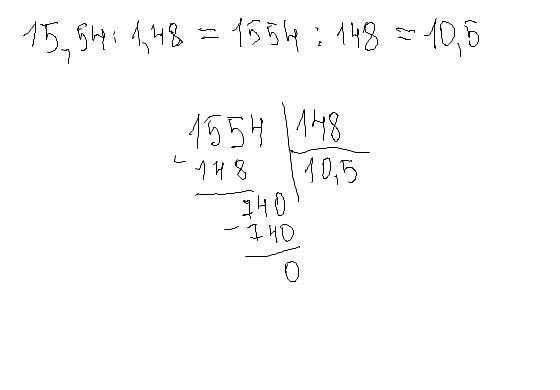 15,54 : 1,48 = 1554 : 148 = 10,5
1554 | 148
- 148 | 10,5
740
- 740
0